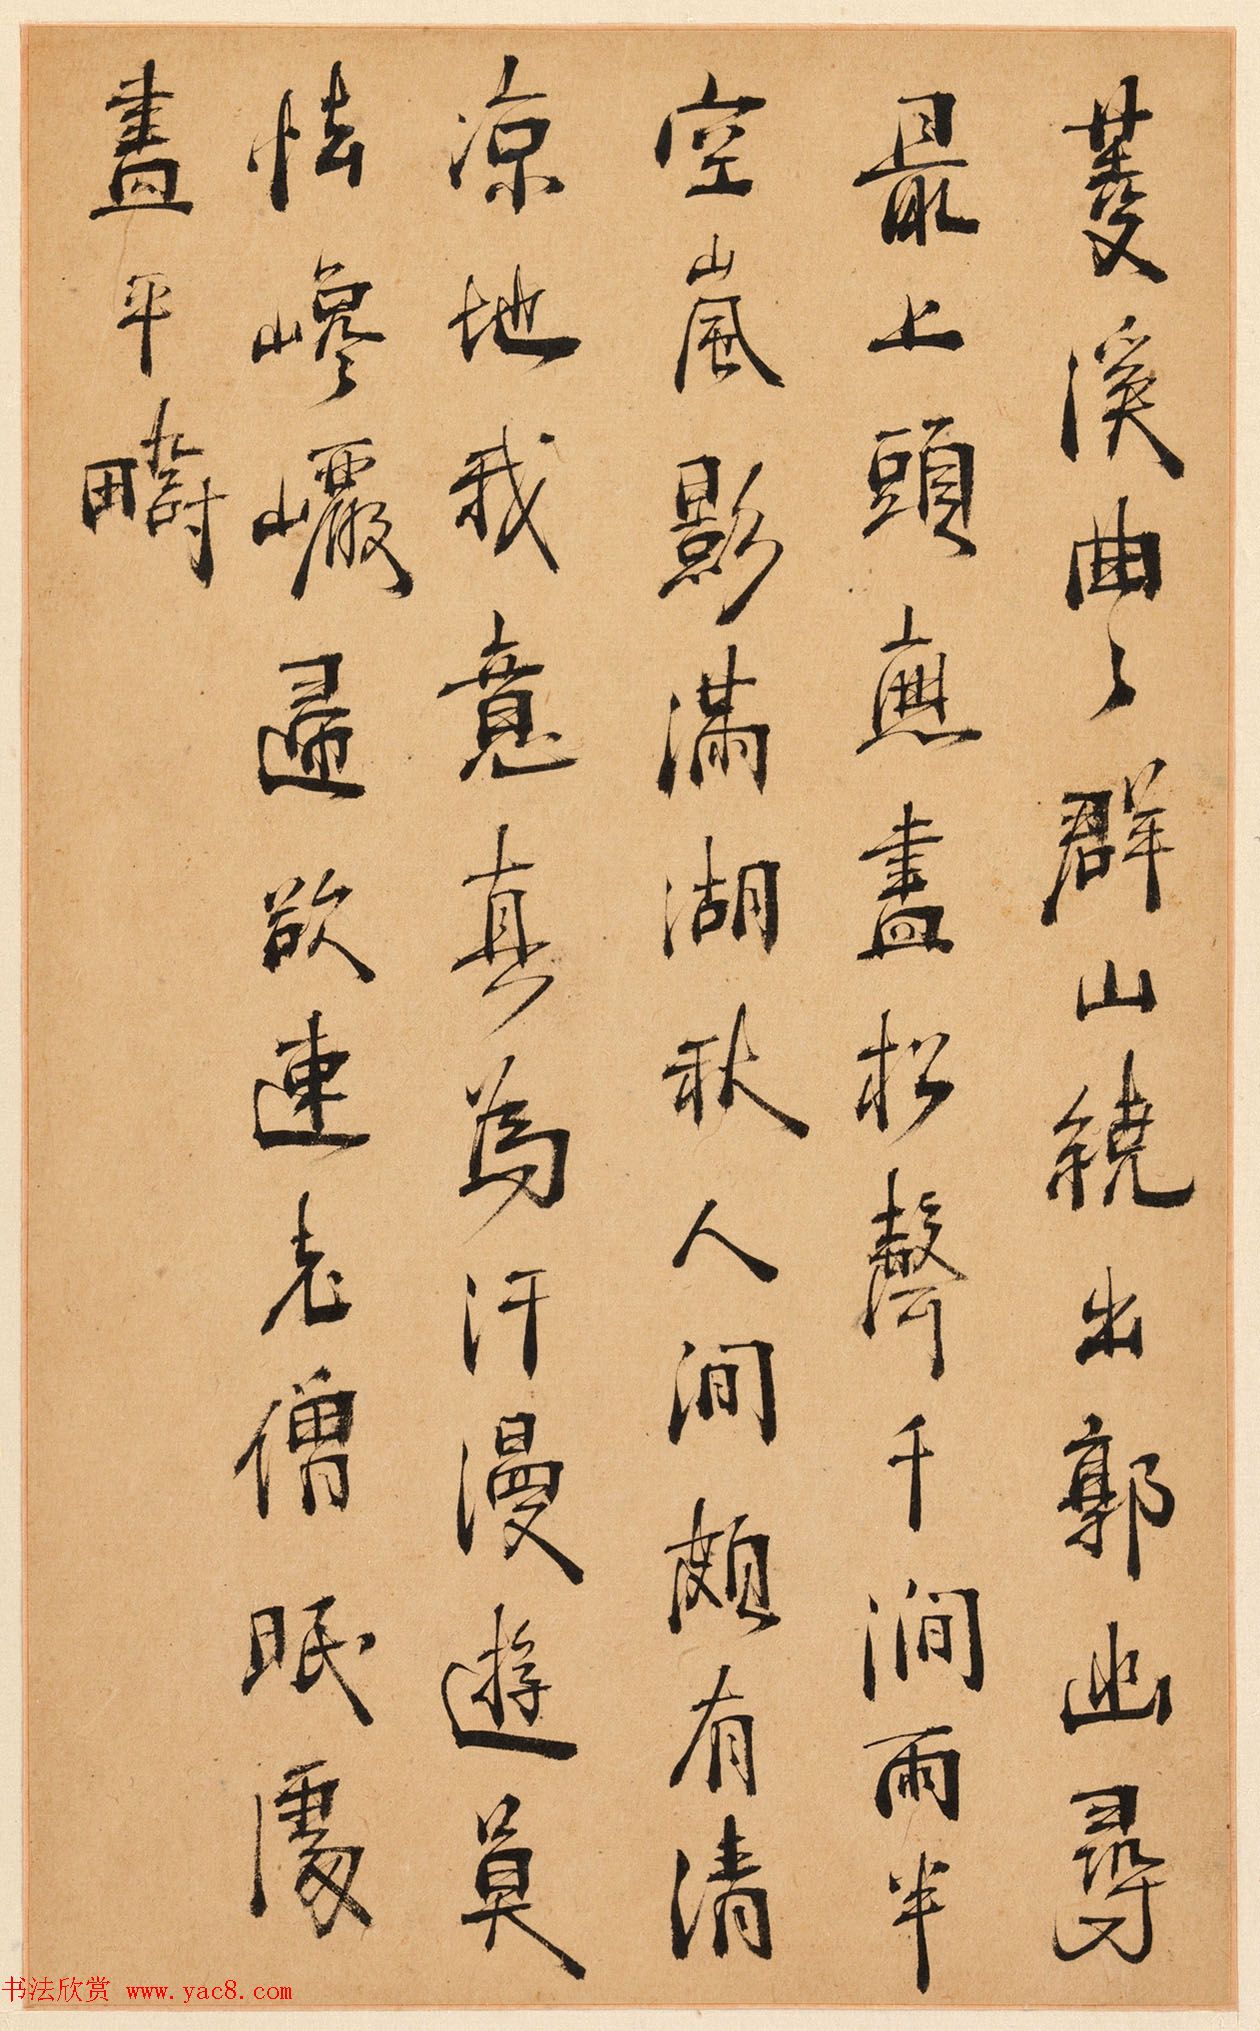 菱溪曲々群山繞出郭幽尋
最上頭無盡松聲千澗雨半
空嵐影滿湖秋人間頗有清
涼地我意真為汗漫遊莫
怯巉巖歸欲速老僧眠處
盡平疇
书法欣赏 www.yac8.com